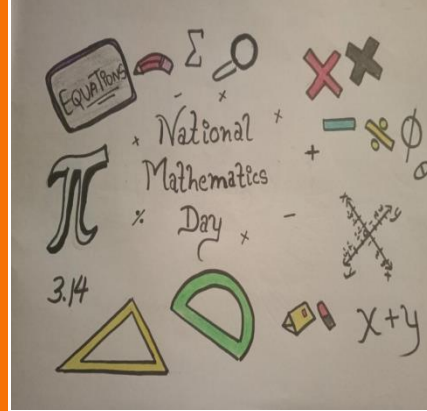 EQUATIONS
Σ
× ×
- ×
+ National ×
+ - % φ
Mathematics
π
% Day × -
3.14
x+y